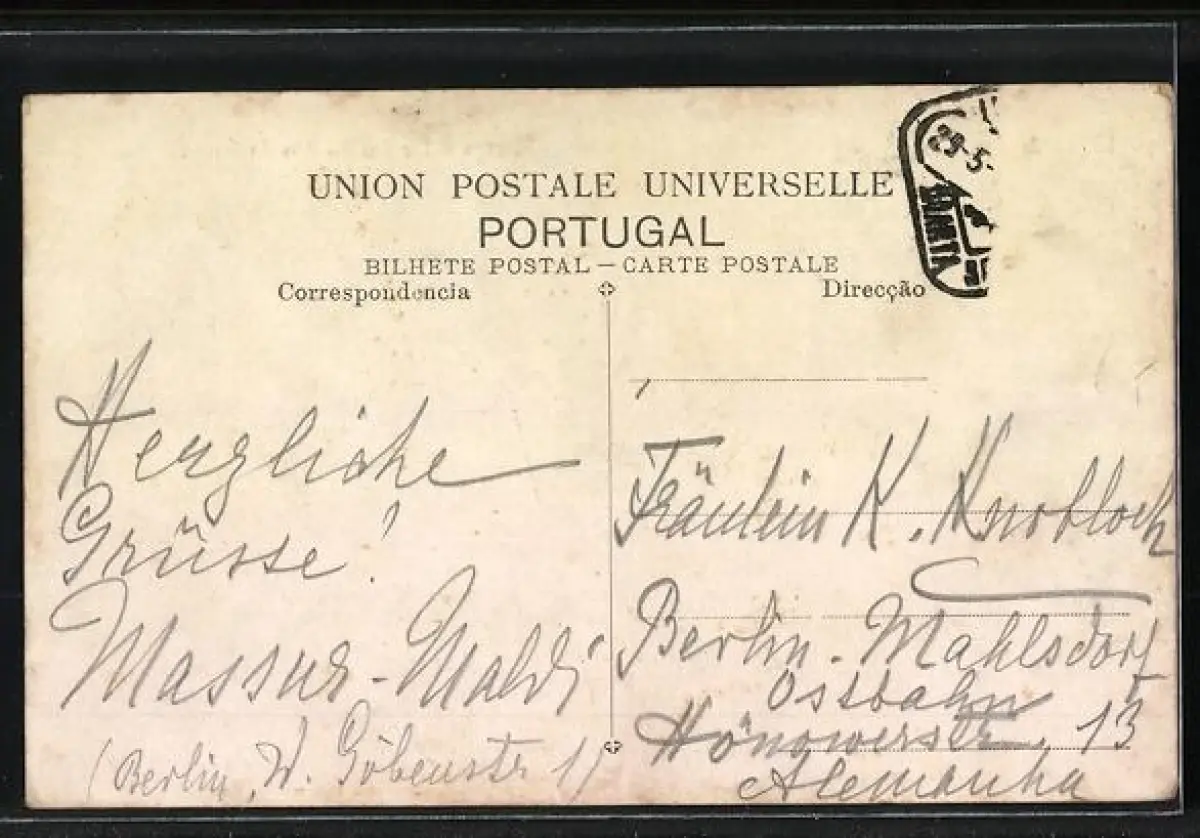 UNION POSTALE UNIVERSELLE
PORTUGAL
BILHETE POSTAL – CARTE POSTALE
Correspondencia
Direcção
29-5-
Herzliche
Grüsse!
Massur-Maldi
(Berlin, W. Göbenstr 1)
Fräulein K. Knobloch
Berlin-Mahlsdorf
Ostbahn
Hönowerstr. 13
Alemanha